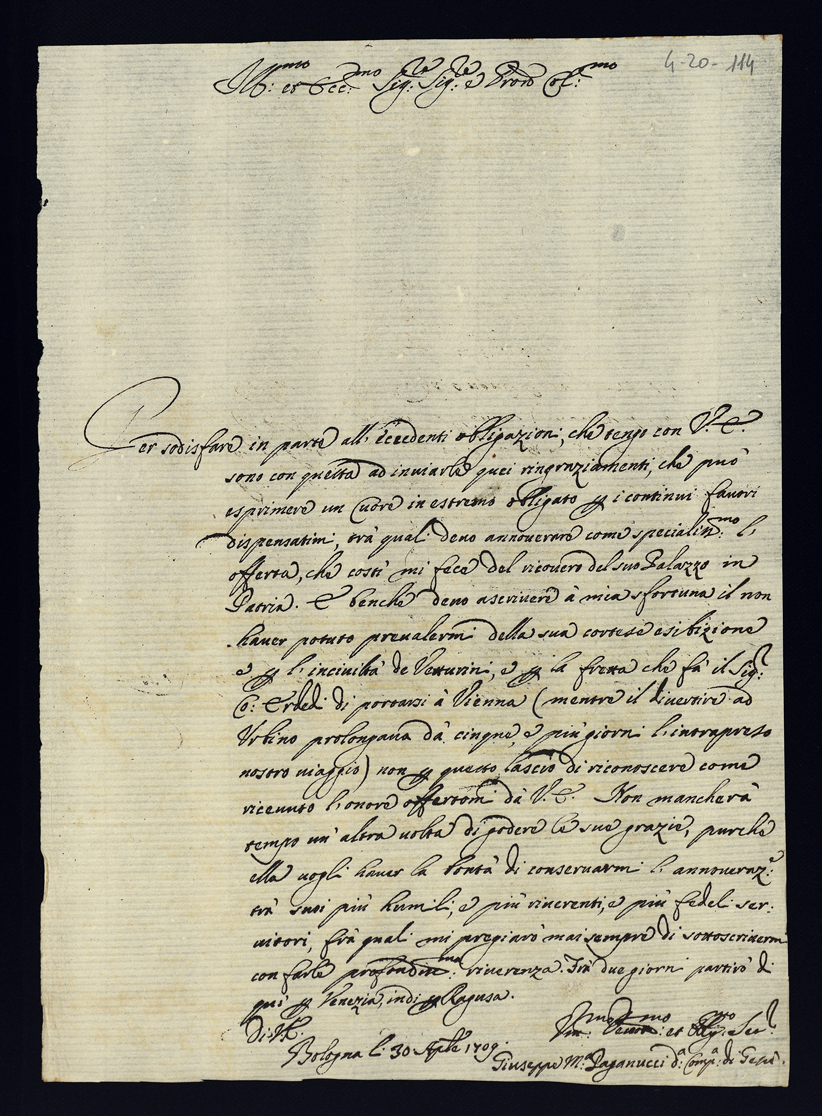 4-20-114
Ill:mo et Ecc:mo Sig:re Sig:re e Pron Col:mo
Per sodisfare in parte all' eccedenti obligazioni, che tengo con V. E.
sono con questa ad inviarle quei ringraziamenti, che può
esprimere un Cuore in estremo obligato p i continui favori
dispensatimi, trà quali devo annoverare come specialiss:mo l'
offerta, che costì mi fece del ricovero del suo Palazzo in
Patria. E benche devo ascrivere à mia sfortuna il non
haver potuto prevalermi della sua cortese esibizione
e p l'inciviltà de Vetturini, e p la fretta che fà il Sig:r
Co: Erdedi di portarsi à Vienna (mentre il divertire ad
Urbino prolongava dà cinque, e più giorni l'intrapreso
nostro viaggio) non p questo lascio di riconoscere come
ricevuto l'onore offertomi dà V. E. Non mancherà
tempo un' altra volta di godere le sue grazie, purche
ella vogli haver la bontà di conservarmi l'annoveraz:e
trà suoi più humili, e più riverenti, e più fedeli ser:
vitori, frà quali mi pregiarò mai sempre di sottoscrivermi
con farle profondiss:ma riverenza. Frà due giorni partirò di
quì p Venezia, indi p Ragusa.
Di V.E.
Bologna li 30 Aprle 1709.
Um:mo Devot:mo et Oblig:mo Ser:r
Giuseppe M:a Paganucci d:a Comp:a di Gesù.